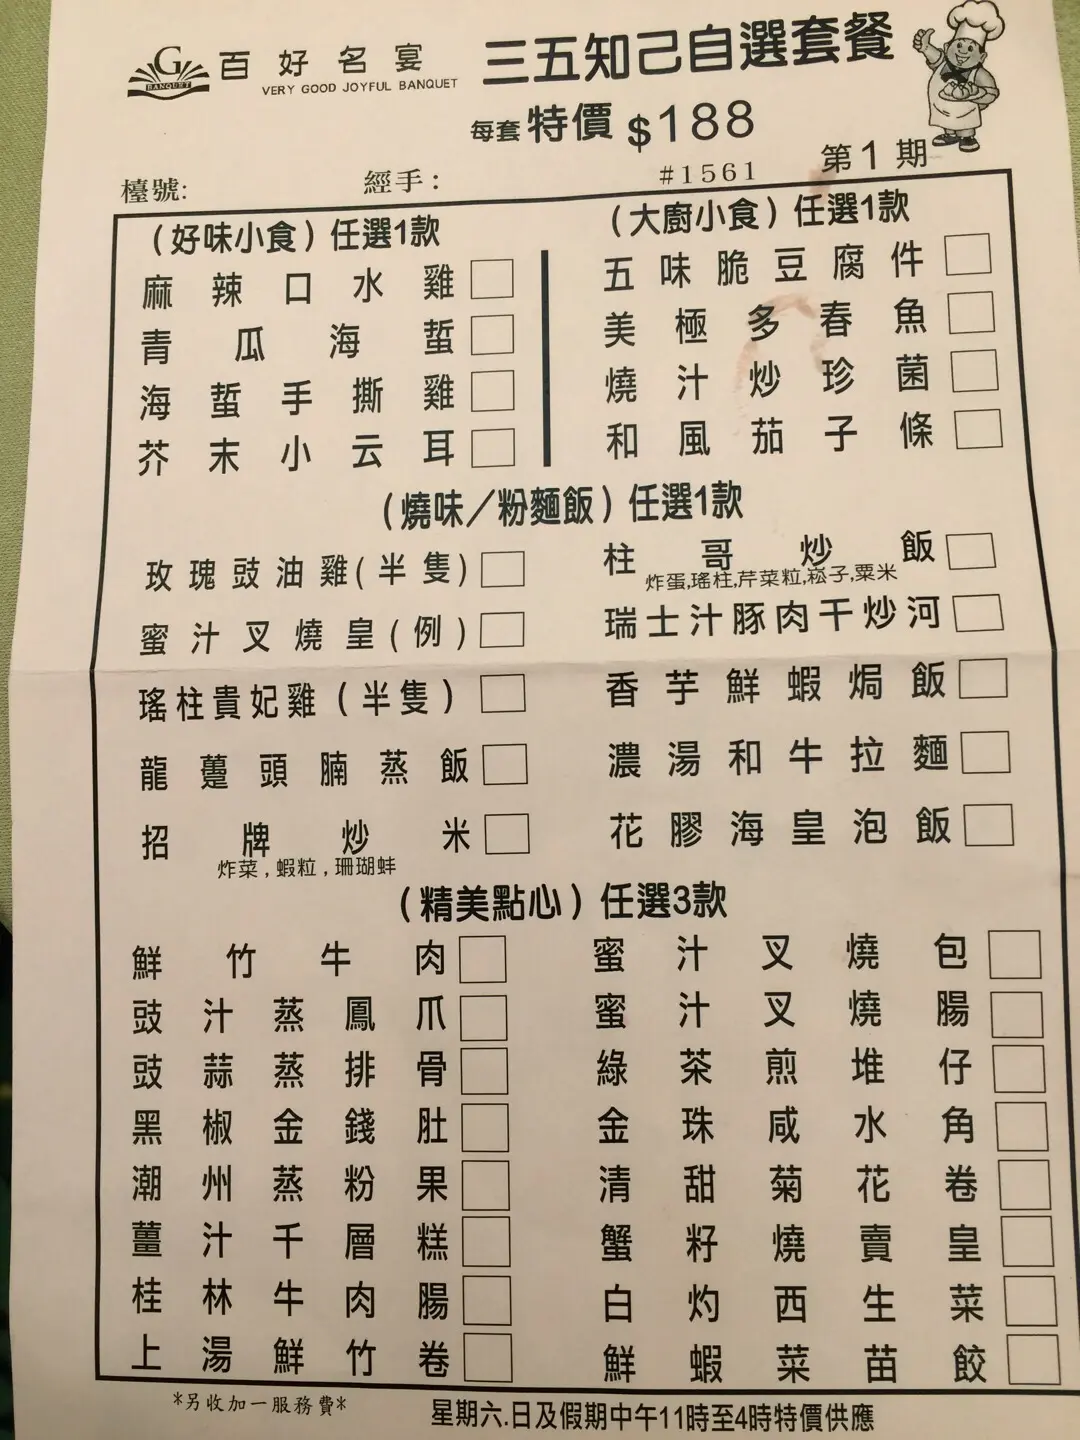 G
BANQUET
百好名宴
VERY GOOD JOYFUL BANQUET
三五知己自選套餐
每套特價$188
檯號:
經手:
#1561
第1期
(好味小食)任選1款
麻辣口水雞
青瓜海蜇
海蜇手撕雞
芥末小云耳
(大廚小食)任選1款
五味脆豆腐件
美極多春魚
燒汁炒珍菌
和風茄子條
(燒味/粉麵飯)任選1款
玫瑰豉油雞(半隻)
蜜汁叉燒皇(例)
瑤柱貴妃雞(半隻)
龍躉頭腩蒸飯
招牌炒米
炸菜,蝦粒,珊瑚蚌
柱哥炒飯
炸蛋,瑤柱,芹菜粒,崧子,粟米
瑞士汁豚肉干炒河
香芋鮮蝦焗飯
濃湯和牛拉麵
花膠海皇泡飯
(精美點心)任選3款
鮮竹牛肉
豉汁蒸鳳爪
豉蒜蒸排骨
黑椒金錢肚
潮州蒸粉果
薑汁千層糕
桂林牛肉腸
上湯鮮竹卷
蜜汁叉燒包
蜜汁叉燒腸
綠茶煎堆仔
金珠咸水角
清甜菊花卷
蟹籽燒賣皇
白灼西生菜
鮮蝦菜苗餃
*另收加一服務費*
星期六.日及假期中午11時至4時特價供應